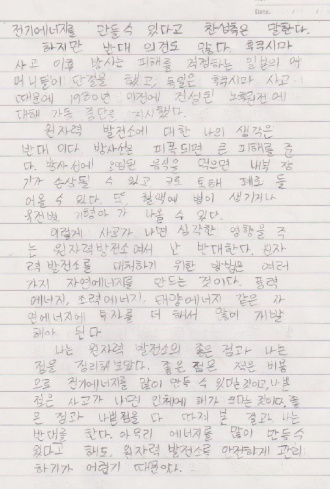 전기에너지를 만들수 있다고 찬성측은 말한다.
하지만 반대 의견도 많다. 후쿠시마
사고 이후 방사능 피해를 걱정하는 일본의 어
머니들이 단절을 했고, 독일은 후쿠시마 사고
때문에 1980년 이전에 건설된 노후원전에
대해 가동 중단을 지시했다.
원자력 발전소에 대한 나의 생각은
반대 이다. 방사능을 피폭되면 큰 피해를 준
다. 방사능에 오염된 음식을 먹으면 내부 장
기가 손상될 수 있고 구토 통해 폐로 들
어올 수 있다. 또, 혈액에 병이 생기거나
유전병, 기형아가 나올 수 있다.
이렇게 사고가 나면 심각한 영향을 주
는 원자력발전소 에서 난 반대한다. 원자
력 발전소를 대처하기 위한 방법은 여러
가지 자연에너지를 만드는 것이다. 풍력
에너지, 조력에너지, 태양에너지 같은 자
연에너지에 투자를 더 해서 많이 개발
해야 된다
나는 원자력 발전소의 좋은 점과 나쁜
점을 정리해보았다. 좋은 점은 적은 비용
으로 전기에너지를 많이 만들 수 있다는것이고, 나쁜
점은 사고가 나면 인체에 피가 크다는 것이다. 좋
은 점과 나쁜점을 다 따져 본 결과 나는
반대를 한다. 아무리 에너지를 많이 만들수
있다고 해도, 원자력 발전소를 안전하게 관리
하기가 어렵기 때문이다.